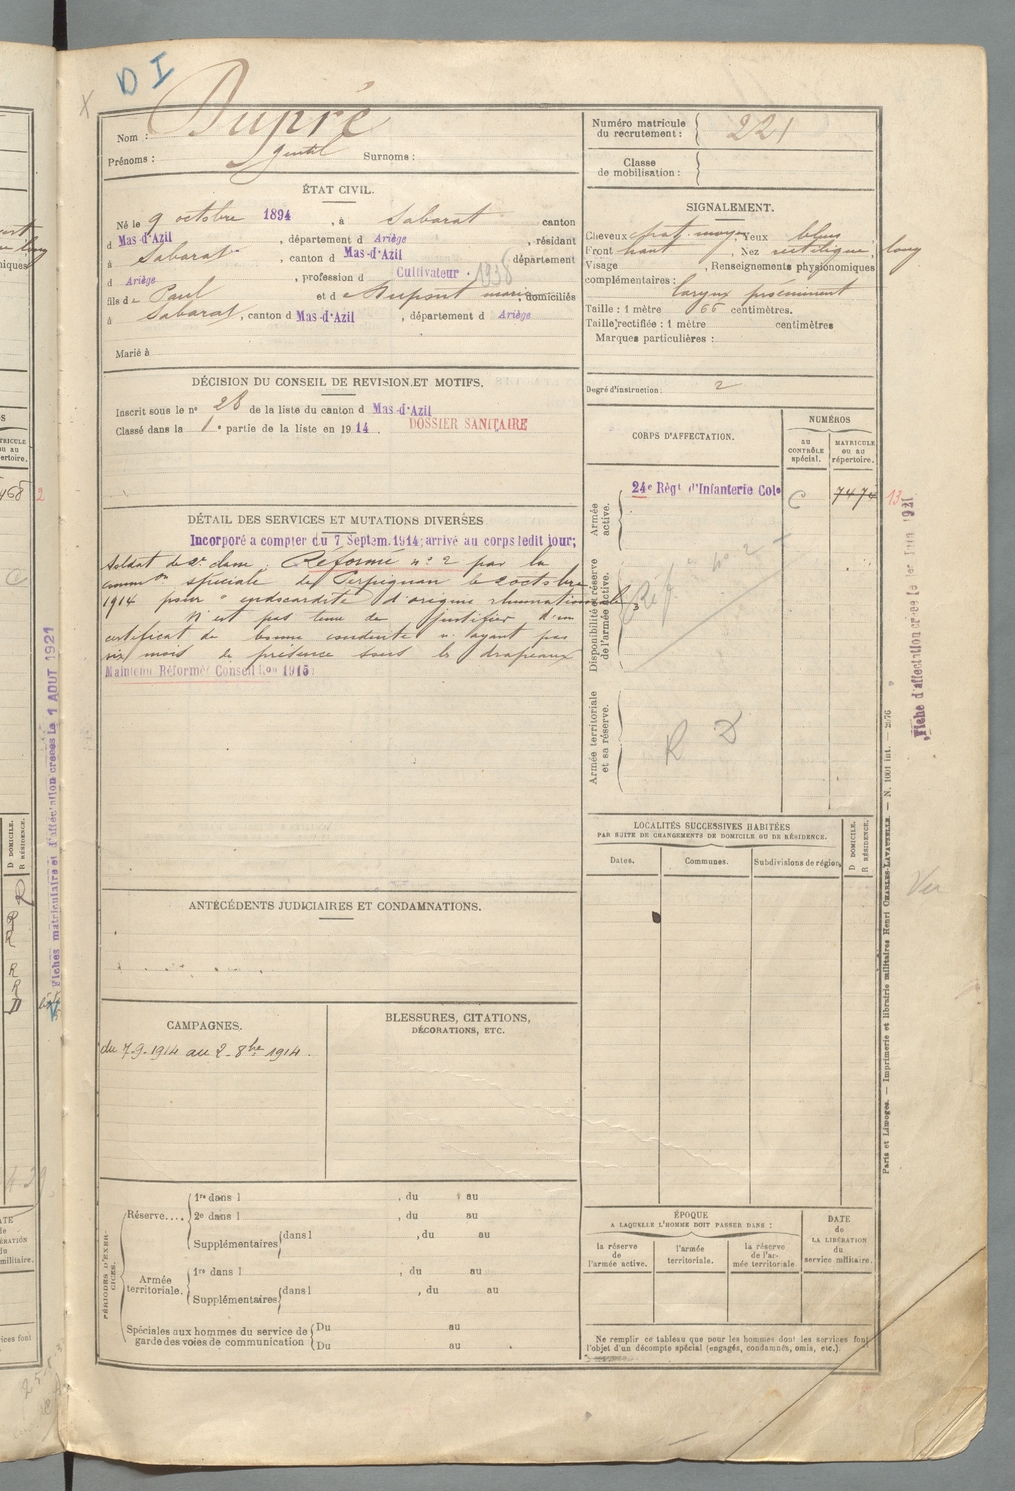 D I
X
Nom : Dupré
Prénoms : Gentil Surnoms :
Numéro matricule du recrutement : 221
Classe de mobilisation :
ÉTAT CIVIL.
Né le 9 octobre 1894, à Sabarat canton
d Mas-d'Azil, département d Ariège, résidant
à Sabarat, canton d Mas-d'Azil département
d Ariège, profession d Cultivateur 1938
fils de Paul et de Dupont marie, domiciliés
à Sabarat, canton d Mas-d'Azil, département d Ariège
Marié à
SIGNALEMENT.
Cheveux chat. moyen, Yeux bleus
Front haut, Nez rectiligne, long
Visage , Renseignements physionomiques
complémentaires : larynx proéminent
Taille : 1 mètre 66 centimètres.
Taille rectifiée : 1 mètre centimètres
Marques particulières :
DÉCISION DU CONSEIL DE REVISION ET MOTIFS.
Inscrit sous le n° 28 de la liste du canton d Mas-d'Azil
Classé dans la 1e partie de la liste en 1914.
DOSSIER SANITAIRE
Degré d'instruction : 2
CORPS D'AFFECTATION.
NUMÉROS
au CONTRÔLE spécial.
MATRICULE ou au répertoire.
Armée active.
24e Régt d'Infanterie Cole
C 7474
13
Disponibilité et réserve de l'armée active.
Réf. n° 2
Armée territoriale et sa réserve.
R D
DÉTAIL DES SERVICES ET MUTATIONS DIVERSES
Incorporé a compter du 7 Septem. 1914; arrivé au corps ledit jour;
Soldat de 2e classe. Réformé n° 2 par la
common spéciale de Perpignan le 2 octobre
1914 pour " endocardite d'origine rhumatismale "
N'est pas tenu de justifier d'un
certificat de bonne conduite n'ayant pas
six mois de présence sous les drapeaux
Maintenu Réformé Conseil Ron 1915 :
LOCALITÉS SUCCESSIVES HABITÉES
PAR SUITE DE CHANGEMENTS DE DOMICILE OU DE RÉSIDENCE.
Dates.
Communes.
Subdivisions de région.
D DOMICILE.
R RÉSIDENCE.
ANTÉCÉDENTS JUDICIAIRES ET CONDAMNATIONS.
CAMPAGNES.
du 7-9-1914 au 2-8bre 1914.
BLESSURES, CITATIONS,
DÉCORATIONS, ETC.
PÉRIODES D'EXERCICES.
Réserve....
1re dans l , du au
2e dans l , du au
Supplémentaires dans l , du au
Armée territoriale.
1re dans l , du au
Supplémentaires dans l , du au
Spéciales aux hommes du service de garde des voies de communication
Du au
Du au
ÉPOQUE
A LAQUELLE L'HOMME DOIT PASSER DANS :
la réserve de l'armée active.
l'armée territoriale.
la réserve de l'armée territoriale
DATE de LA LIBÉRATION du service militaire.
Ne remplir ce tableau que pour les hommes dont les services font
l'objet d'un décompte spécial (engagés, condamnés, omis, etc.).
Paris et Limoges. — Imprimerie et librairie militaires Henri CHARLES-LAVAUZELLE. — N. 1001 int. — 2976
Fiche d'affectation créée le 1er Juin 1921
Fiches matriculaire et d'affectation créées le 1 AOUT 1921